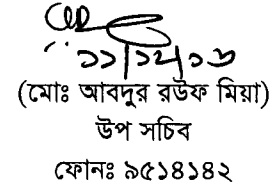 ১১/১২/১৩
(মোঃ আবদুর রউফ মিয়া)
উপ সচিব
ফোনঃ ৯৫১৪১৪২